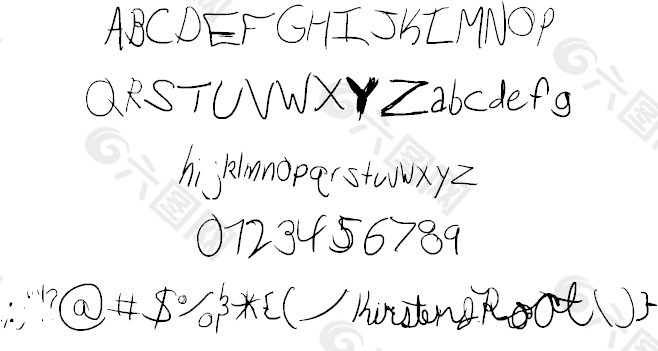 ABCDEFGHIJKLMNOP
QRSTUVWXYZabcdefg
hijklmnopqrstuvwxyz
0123456789
.:,;'"!?@#$%&*{(/KirstensRoot\)}
六图网